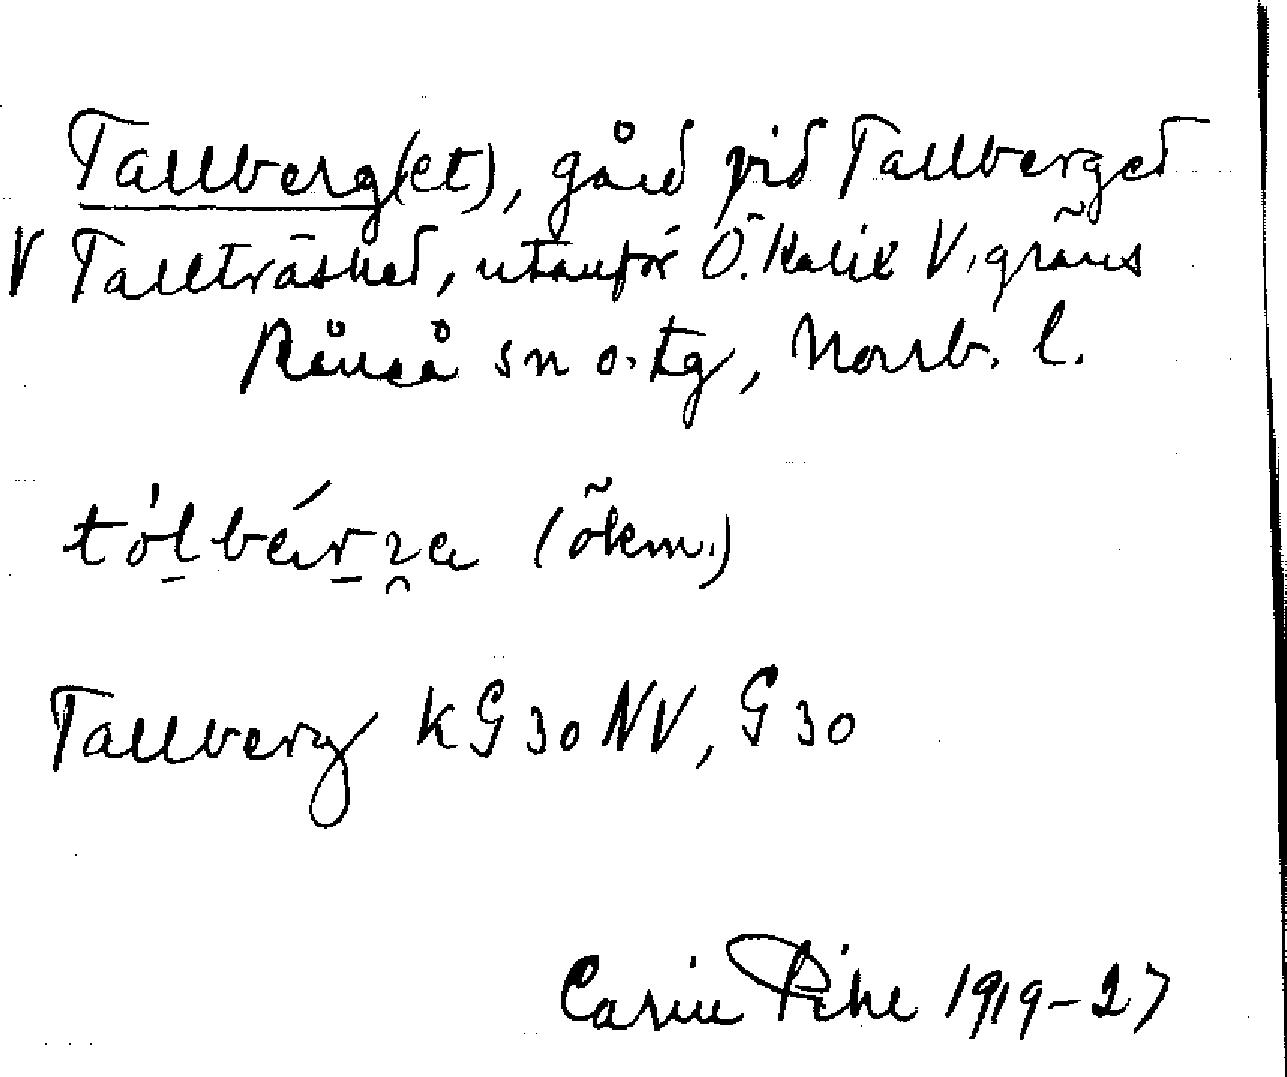 Tallberg(et), gård vid Tallberget
V Tallträsket, utanför Ö. Kalix V. gräns
Råneå sn o. tg, Norrb. l.
(ökm.)
Tallberg K G 30 NV, G 30
Carin Pihl 1919-27